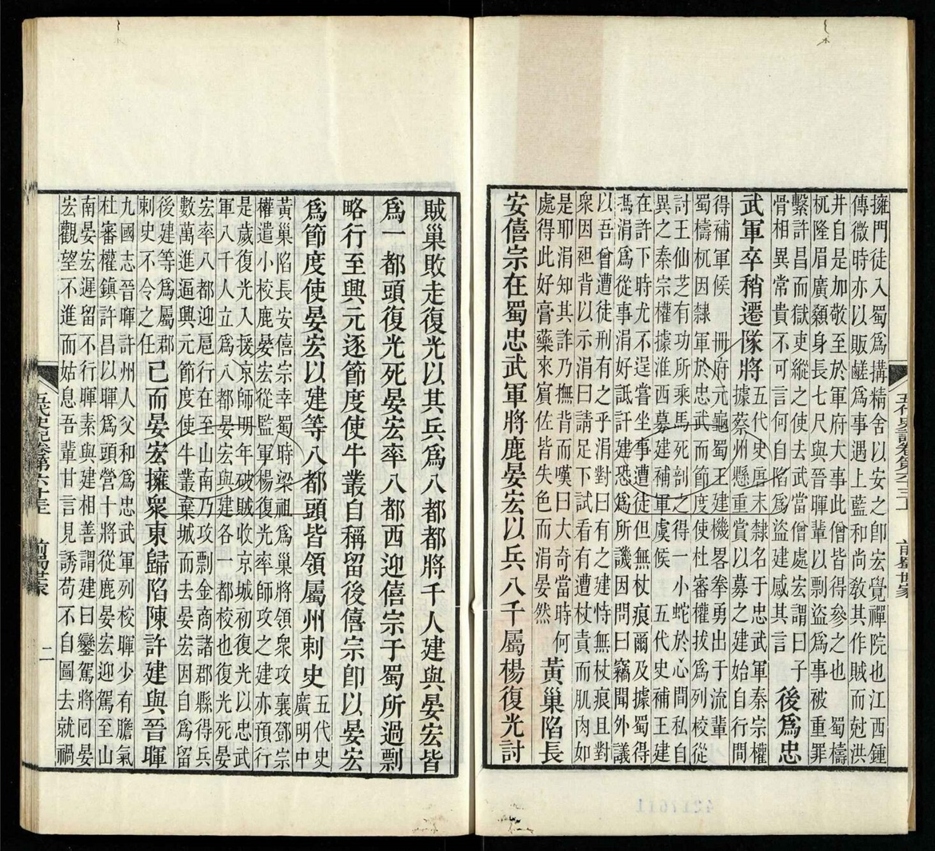 擁門徒入蜀爲搆精舍以安之卽宏覺禪院也江西鍾
傳微時亦以販鹺爲事遇上藍和尚敎其作賊而尅洪
井自是加敬至於軍府大事此僧皆得參之也　蜀檮
杌隆眉廣顙身長七尺與晉暉輩以剽盜爲事被重罪
繫許昌而獄吏縱之使去武當僧處宏謂曰子
骨相異常貴不可言何自陷爲盜建感其言
後爲忠
武軍卒稍遷隊將
五代史唐末隸名于忠武軍秦宗權
據蔡州懸重賞以募之建始自行間
得補軍候　冊府元龜蜀王建機畧拳勇出于流輩
蜀檮杌因隸軍於忠武而節度使杜審權拔爲列校從
討王仙芝有功所乘馬死剖之得一小蛇於心間私自
異之秦宗權據淮西募建補軍虞候　五代史補王建
在許下時尤不逞嘗坐事遭徒但無杖痕爾及據蜀得
馮涓爲從事涓好詆訐建恐爲所譏因問曰竊聞外議
以吾曾遭徒刑有之乎涓對曰有之建恃無杖痕且對
衆因袒背以示涓曰請足下試看有遭杖責而肌肉如
是耶涓知其詐乃撫背而嘆曰大奇當時何
處得此好膏藥來賓佐皆失色而涓晏然
黃巢陷長
安僖宗在蜀忠武軍將鹿晏宏以兵八千屬楊復光討
賊巢敗走復光以其兵爲八都都將千人建與晏宏皆
爲一都頭復光死晏宏率八都西迎僖宗于蜀所過剽
略行至興元逐節度使牛叢自稱留後僖宗卽以晏宏
爲節度使晏宏以建等八都頭皆領屬州刺史
五代史
廣明中
黃巢陷長安僖宗幸蜀時梁祖爲巢將領衆攻襄鄧宗
權遣小校鹿晏宏從監軍楊復光率師攻之建亦預行
是歲復光入援京師明年破賊收京城初復光以忠武
軍八千人立爲八都晏宏與建各一都校也復光死晏
宏率八都迎扈行在至山南乃攻剽金商諸郡縣得兵
數萬進逼興元節度使牛叢棄城而去晏宏因自爲留
後建等爲屬郡
刺史不令之任
已而晏宏擁衆東歸陷陳許建與晉暉
九國志晉暉許州人父和爲忠武軍列校暉少有膽氣
杜審權鎭許昌以暉爲頭營十將從鹿晏宏迎駕至山
南晏宏遲留不行暉素與建相善謂建曰鑾駕將囘晏
宏觀望不進而姑息吾輩甘言見誘苟不自圖去就禍
五代史記卷第六十三
前蜀世家
二